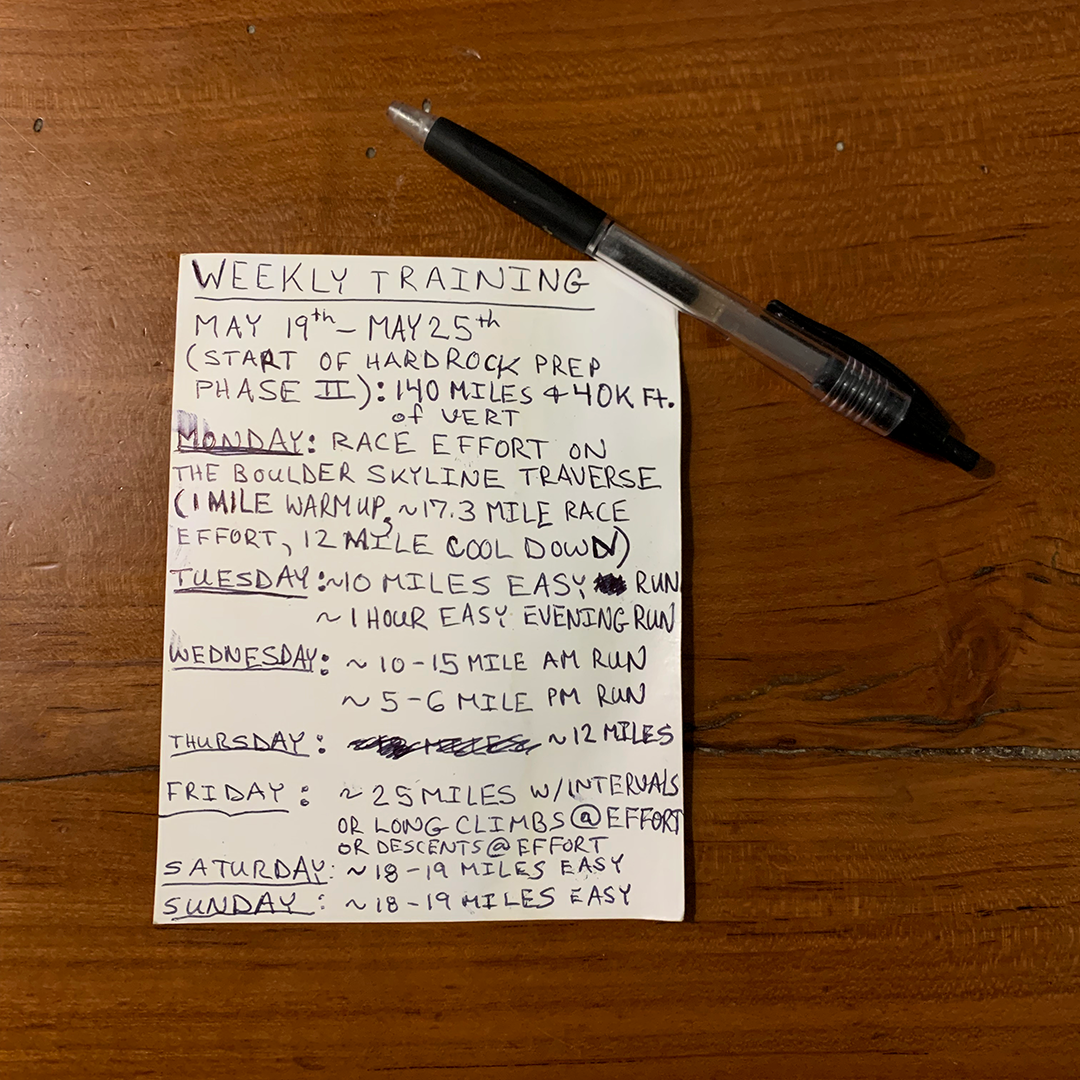 WEEKLY TRAINING
MAY 19th - MAY 25th
(START OF HARDROCK PREP
PHASE II): 140 MILES & 40K FT.
of VERT
MONDAY: RACE EFFORT ON
THE BOULDER SKYLINE TRAVERSE
(1 MILE WARM UP, ~17.3 MILE RACE
EFFORT, 12 MILE COOL DOWN)
TUESDAY: ~10 MILES EASY RUN
~ 1 HOUR EASY EVENING RUN
WEDNESDAY: ~ 10-15 MILE AM RUN
~ 5-6 MILE PM RUN
THURSDAY: ~12 MILES
FRIDAY: ~ 25 MILES W/INTERVALS
OR LONG CLIMBS @ EFFORT
OR DESCENTS @ EFFORT
SATURDAY: ~18-19 MILES EASY
SUNDAY: ~18-19 MILES EASY